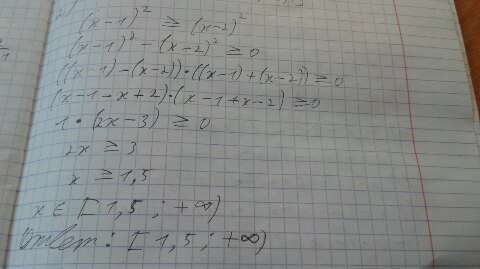 (x-1)² ≥ (x-2)²
(x-1)² - (x-2)² ≥ 0
((x-1)-(x-2))·((x-1)+(x-2)) ≥ 0
(x-1-x+2)·(x-1+x-2) ≥ 0
1·(2x-3) ≥ 0
2x ≥ 3
x ≥ 1,5
x ∈ [1,5; +∞)
Ответ: [1,5; +∞)